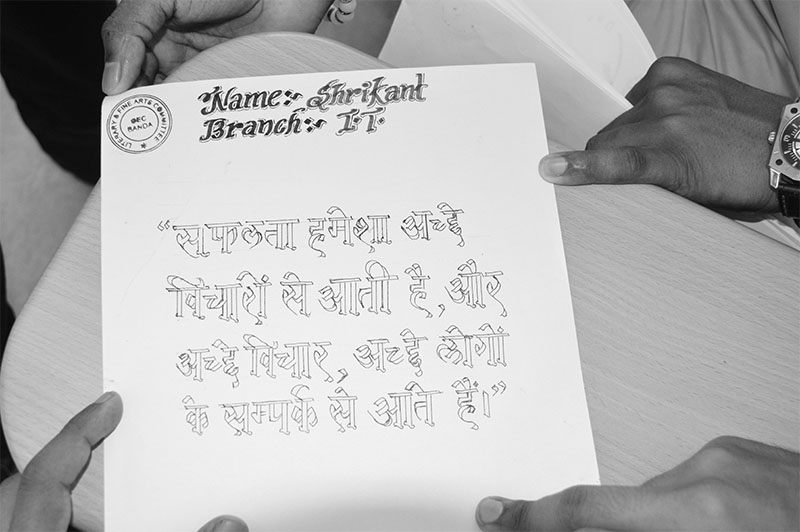 LITERARY & FINE ARTS COMMITTEE
GEC
BANDA
Name:- Shrikant
Branch:- I.T.
“सफलता हमेशा अच्छे
विचारों से आती है, और
अच्छे विचार, अच्छे लोगों
के सम्पर्क से आते हैं।”